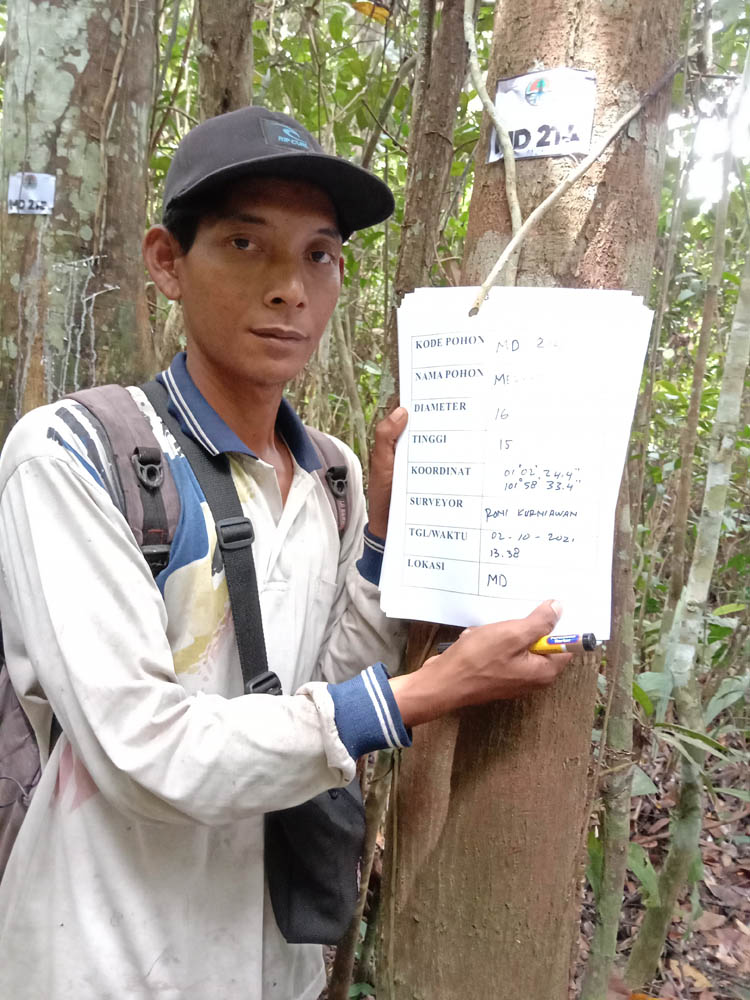 RIP CURL
MD 21-2
KODE POHON MD 2
NAMA POHON ME
DIAMETER 16
TINGGI 15
KOORDINAT 01°02' 24.4"
101°58' 33.4"
SURVEYOR RONI KURNIAWAN
TGL/WAKTU 02-10-2021
13.38
LOKASI MD